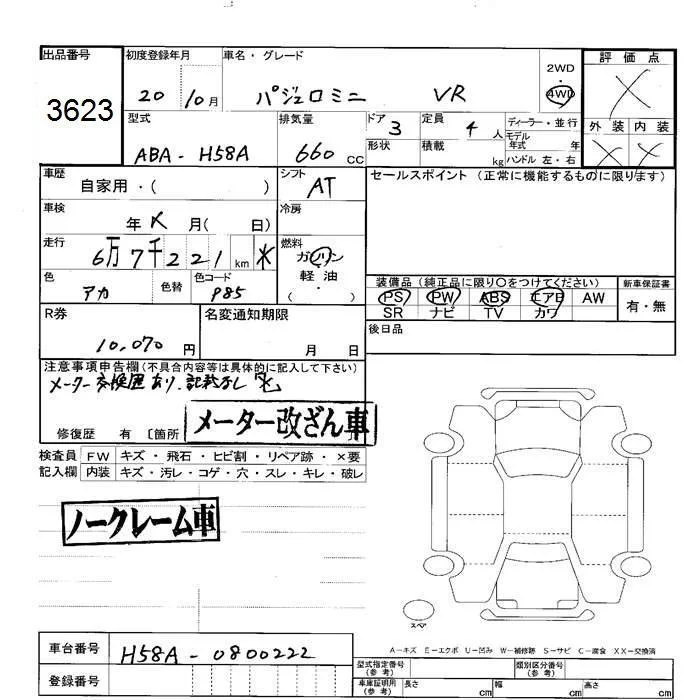 出品番号 初度登録年月 車名・グレード 2WD 評価点
3623 20 10月 パジェロミニ VR 4WD
型式 排気量 ドア 3 定員 4人 ディーラー・並行 外装 内装
ABA-H58A 660 CC 形状 積載 kg モデル年式 年
ハンドル 左・右
車歴 シフト セールスポイント (正常に機能するものに限ります)
自家用・( ) AT
車検 冷房
年 月( 日)
走行 燃料
6万7千221km ガソリン
軽油
・
( )
色 色替 色コード 装備品 (純正品に限り○をつけてください) 新車保証書
アカ P85 PS PW ABS エアB AW 有・無
SR ナビ TV カワ
R券 名変通知期限 後日品
10,070円 月 日
注意事項申告欄(不具合内容等は具体的に記入して下さい)
メーター交換歴あり、記録なし
メーター改ざん車
修復歴 有 〔箇所
検査員 FW キズ・飛石・ヒビ割・リペア跡・×要
記入欄 内装 キズ・汚レ・コゲ・穴・スレ・キレ・破レ
ノークレーム車
スペア
A-キズ E-エクボ U-凹み W-補修跡 S-サビ C-腐食 XX-交換済
車台番号 H58A-0800222 型式指定番号(参考) 類別区分番号(参考)
登録番号 車庫証明用(参考) 長さ cm 幅 cm 高さ cm